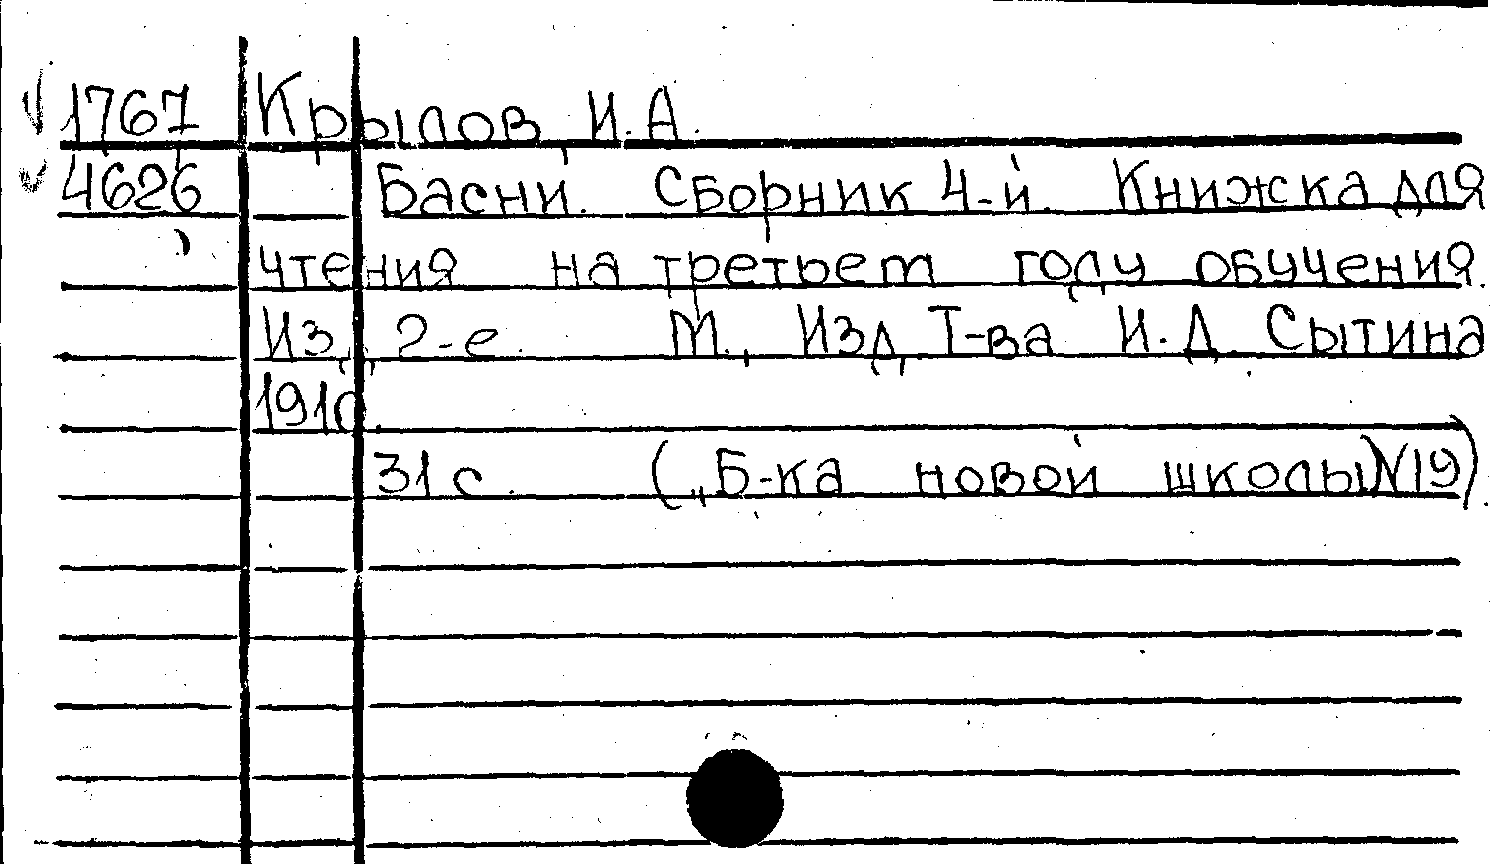 1767 Крылов И.А.
4626 Басни. Сборник 4-й. Книжка для
чтения на третьем году обучения.
Изд. 2-е. М., Изд. Т-ва И.Д. Сытина
1910.
31 с. („Б-ка новой школы N19)